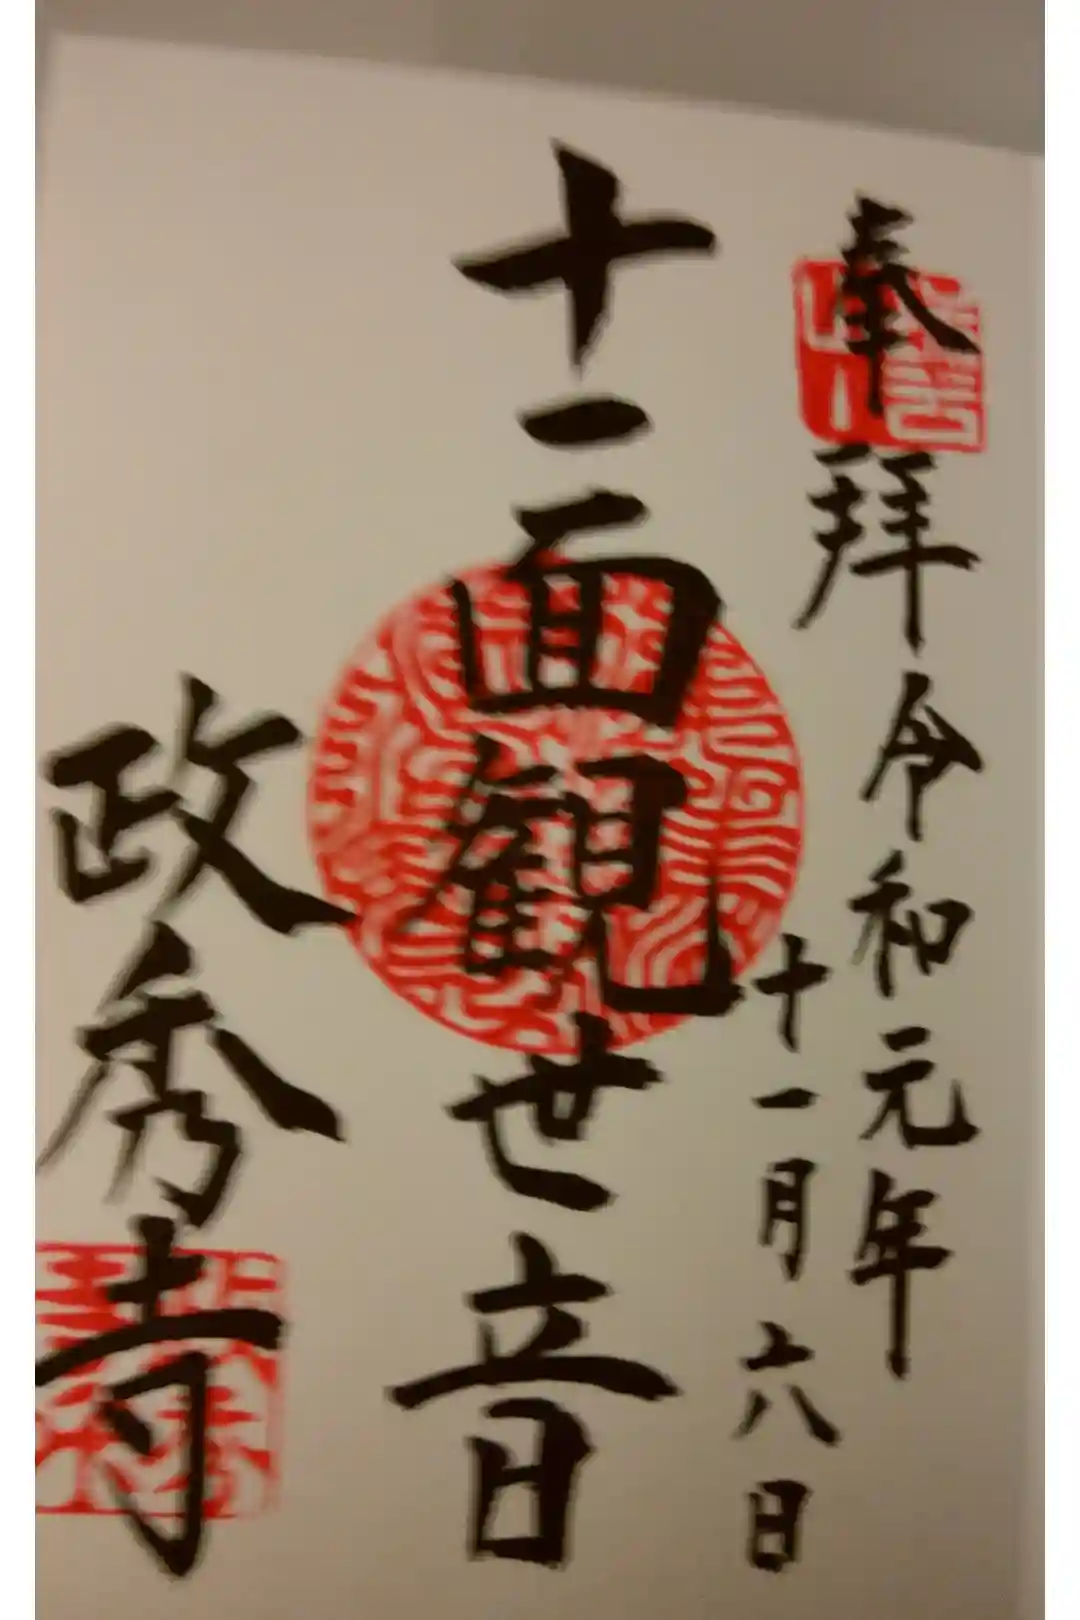 奉拝
令和元年
十一月六日
十一面観世音
政秀寺